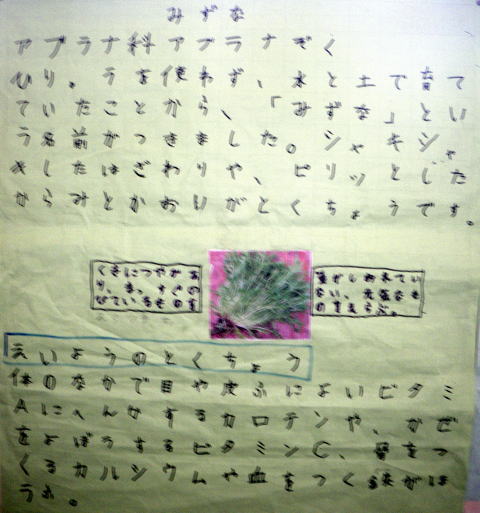 みずな
アブラナ科アブラナぞく
ひりょうを使わず、水と土で育て
ていたことから、「みずな」とい
う名前がつきました。シャキシャ
キしたはざわりや、ピリッとした
からみとかおりがとくちょうです。
くきにつやがあ
り、まっすぐの
びているもの
葉がしおれてい
ない、元気なも
のをえらぶ。
えいようのとくちょう
体のなかで目や皮ふによいビタミ
Aにへんかするカロテンや、かぜ
をよぼうするビタミンC、骨をつ
くるカルシウムや血をつくる鉄がほ
うふ。